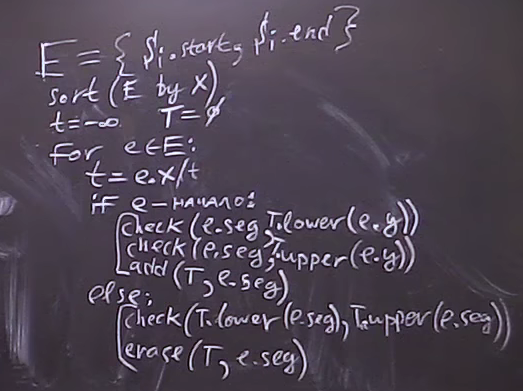 E = { βi.start, βi.end }
sort (E by X)
t = -∞ T = ∅
For e ∈ E:
t = e.x/t
if e - начало:
check (e.seg, T.lower(e.y))
check (e.seg, T.upper(e.y))
add (T, e.seg)
else:
check (T.lower(e.seg), T.upper(e.seg))
erase (T, e.seg)